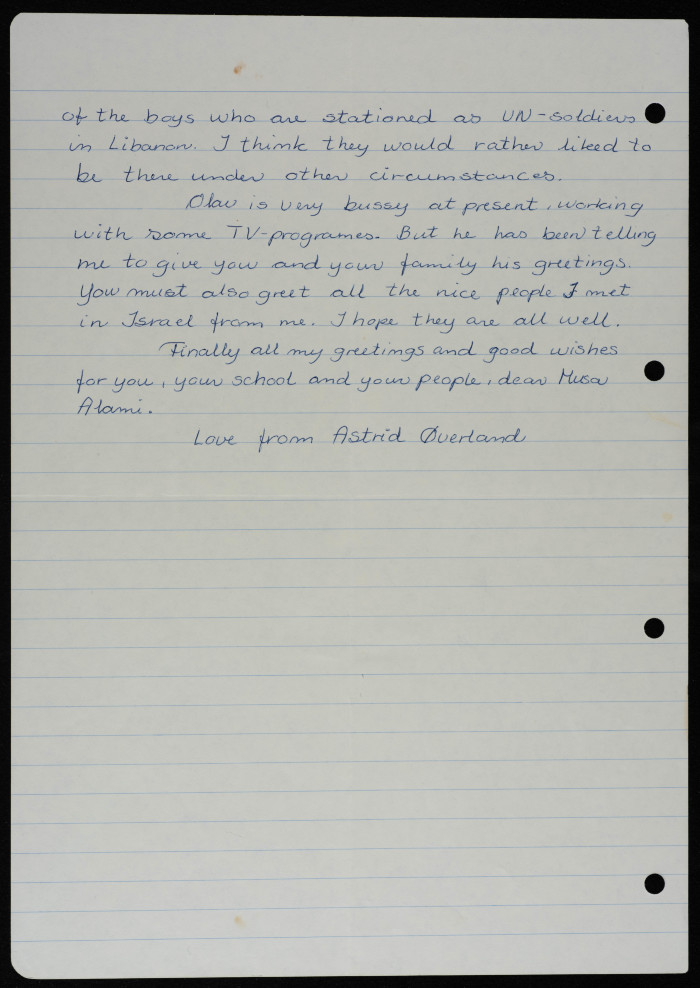 of the boys who are stationed as UN-soldiers
in Libanon. I think they would rather liked to
be there under other circumstances.
Olav is very bussy at present, working
with some TV-programes. But he has been telling
me to give you and your family his greetings.
You must also greet all the nice people I met
in Israel from me. I hope they are all well.
Finally all my greetings and good wishes
for you, your school and your people, dear Musa
Alami.
Love from Astrid Øverland